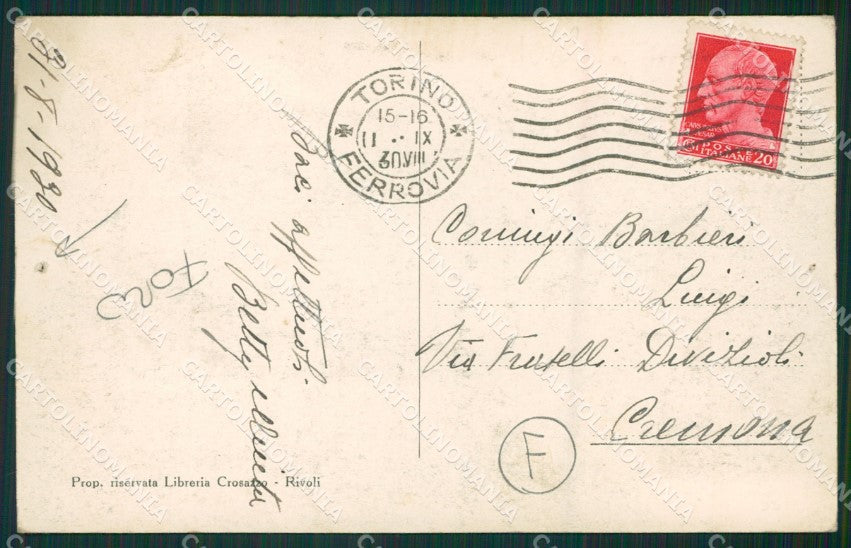 31-8-1930
Foro
Baci affettuosi
Betty
TORINO
15-16
11 · · IX
30VIII
FERROVIA
CAIUS IULIUS
CAESAR
POSTE
ITALIANE 20
Coniugi Barbieri
Luigi
Via Fratelli Divizioli
Cremona
F
Prop. riservata Libreria Crosazzo - Rivoli
CARTOLINOMANIA